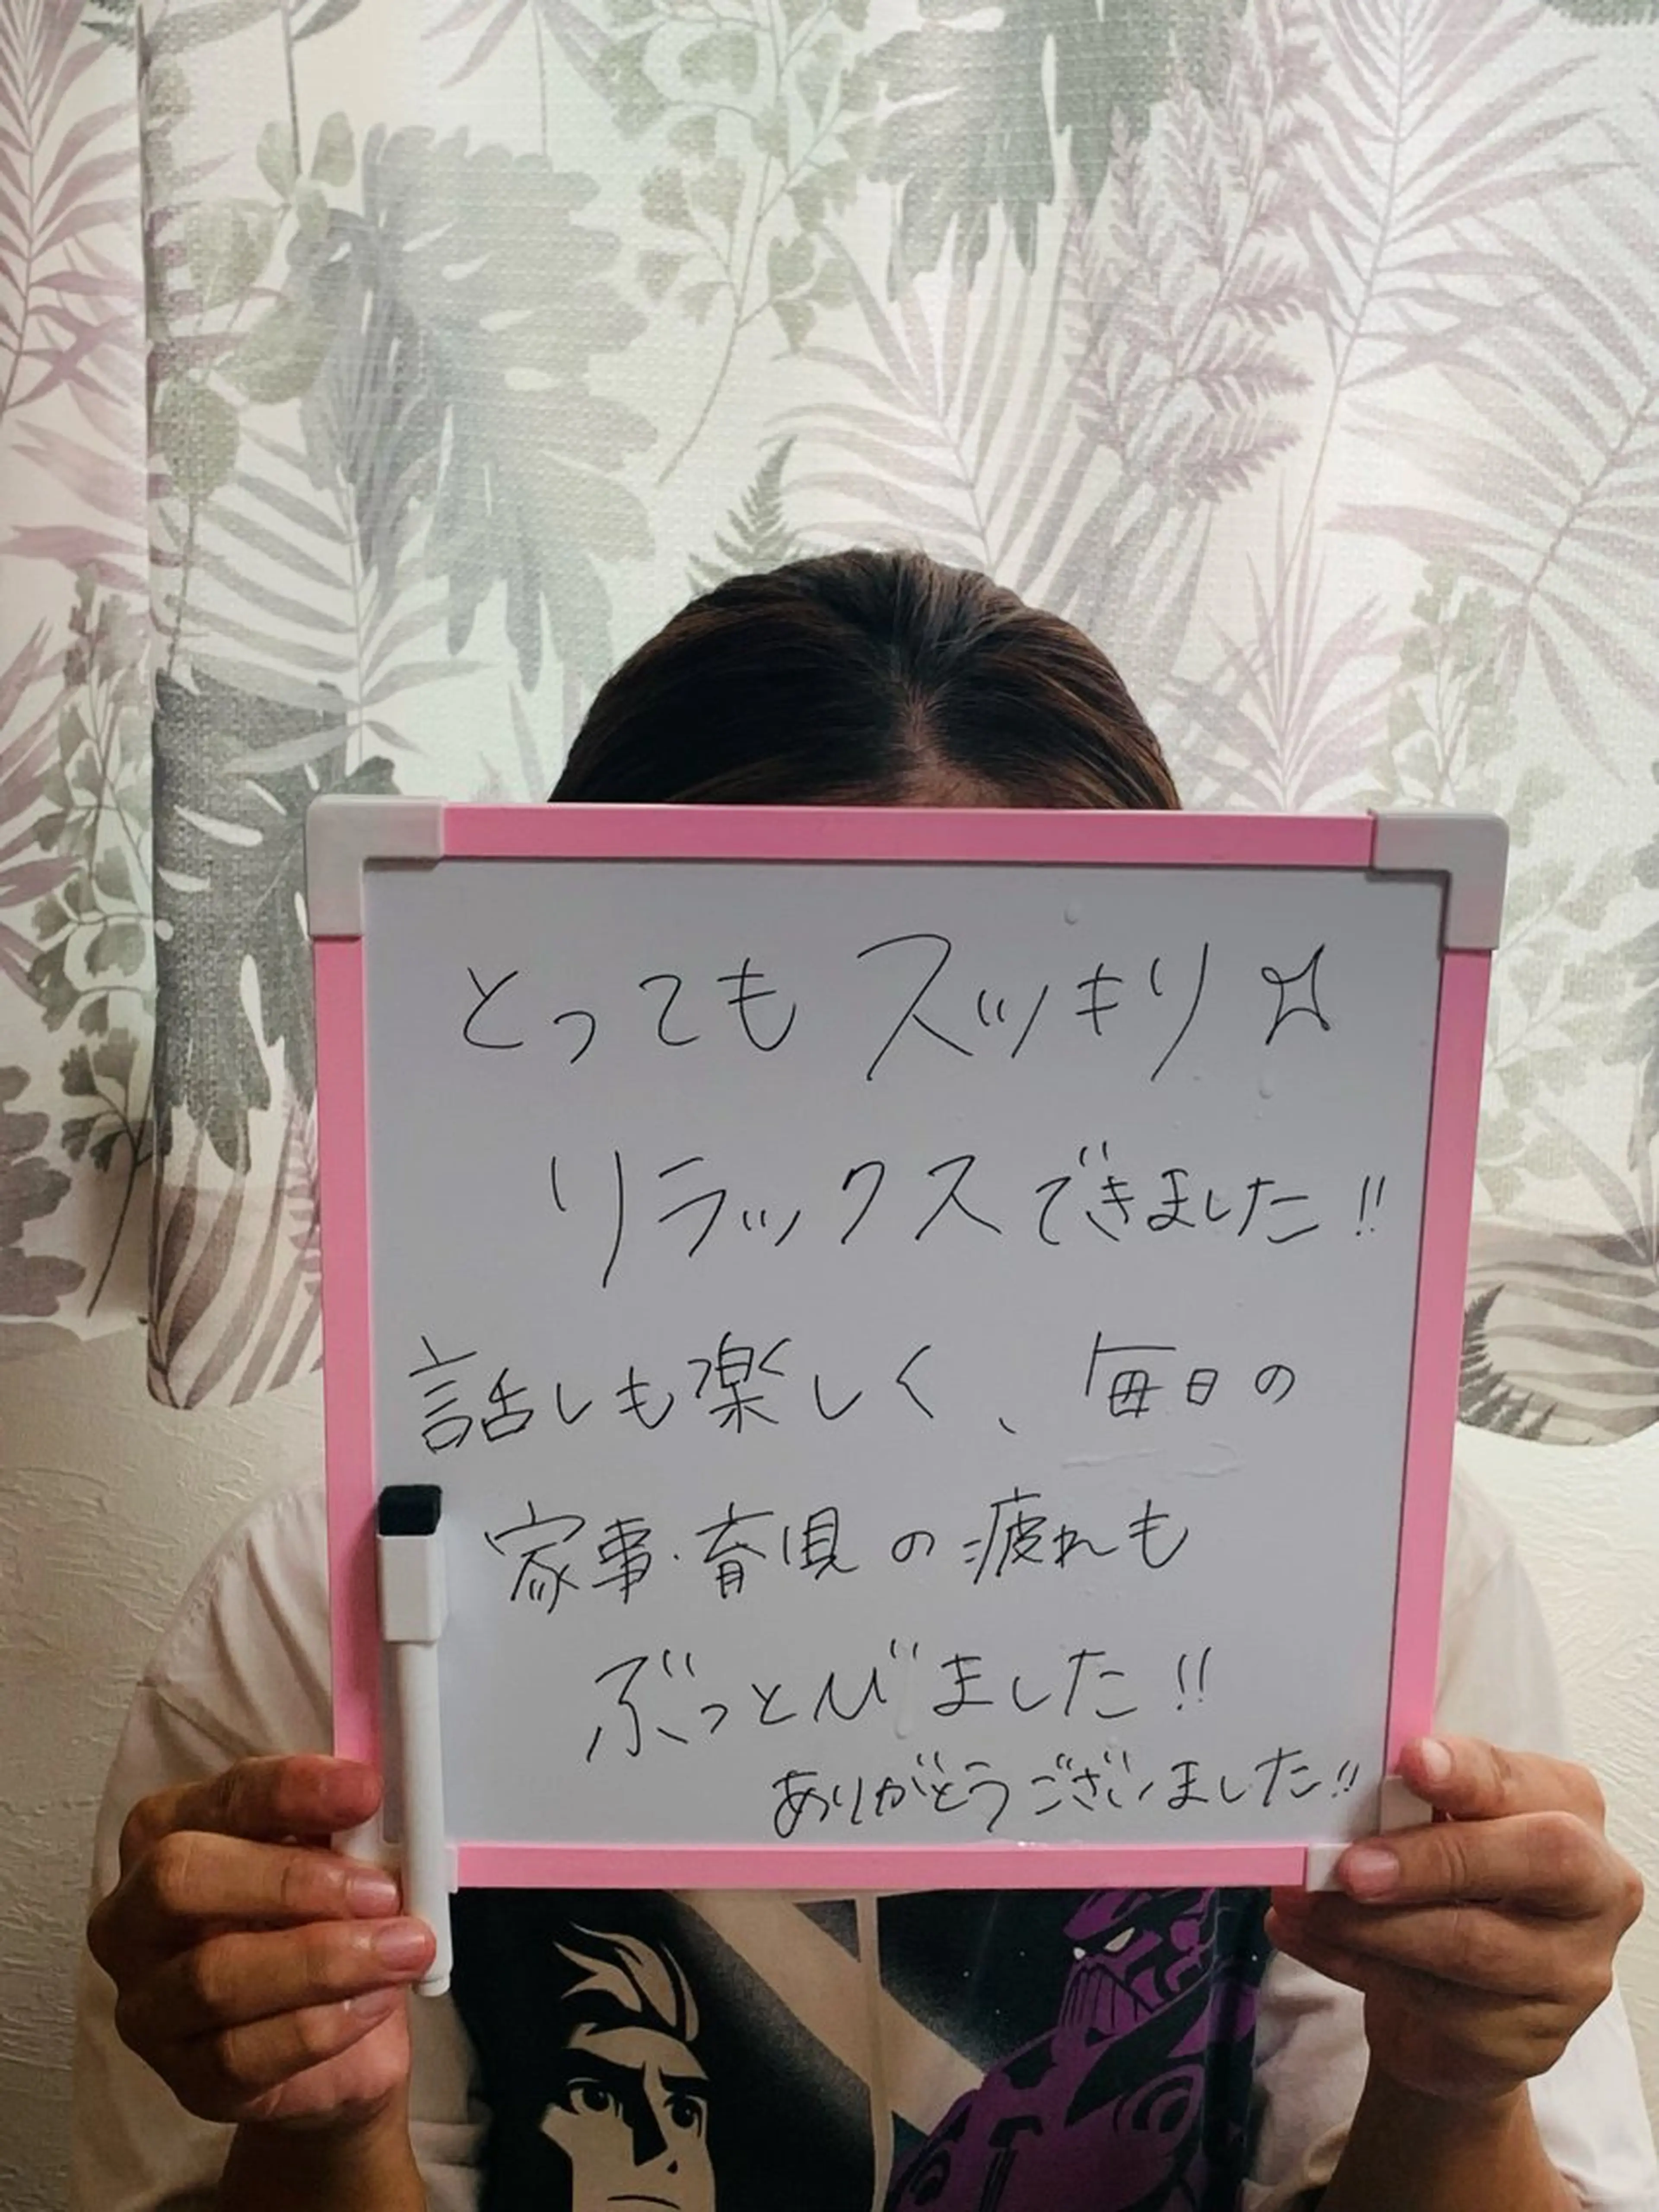 とってもスッキリ☆
リラックスできました!!
話しも楽しく、毎日の
家事・育児の疲れも
ぶっとびました!!
ありがとうございました!!